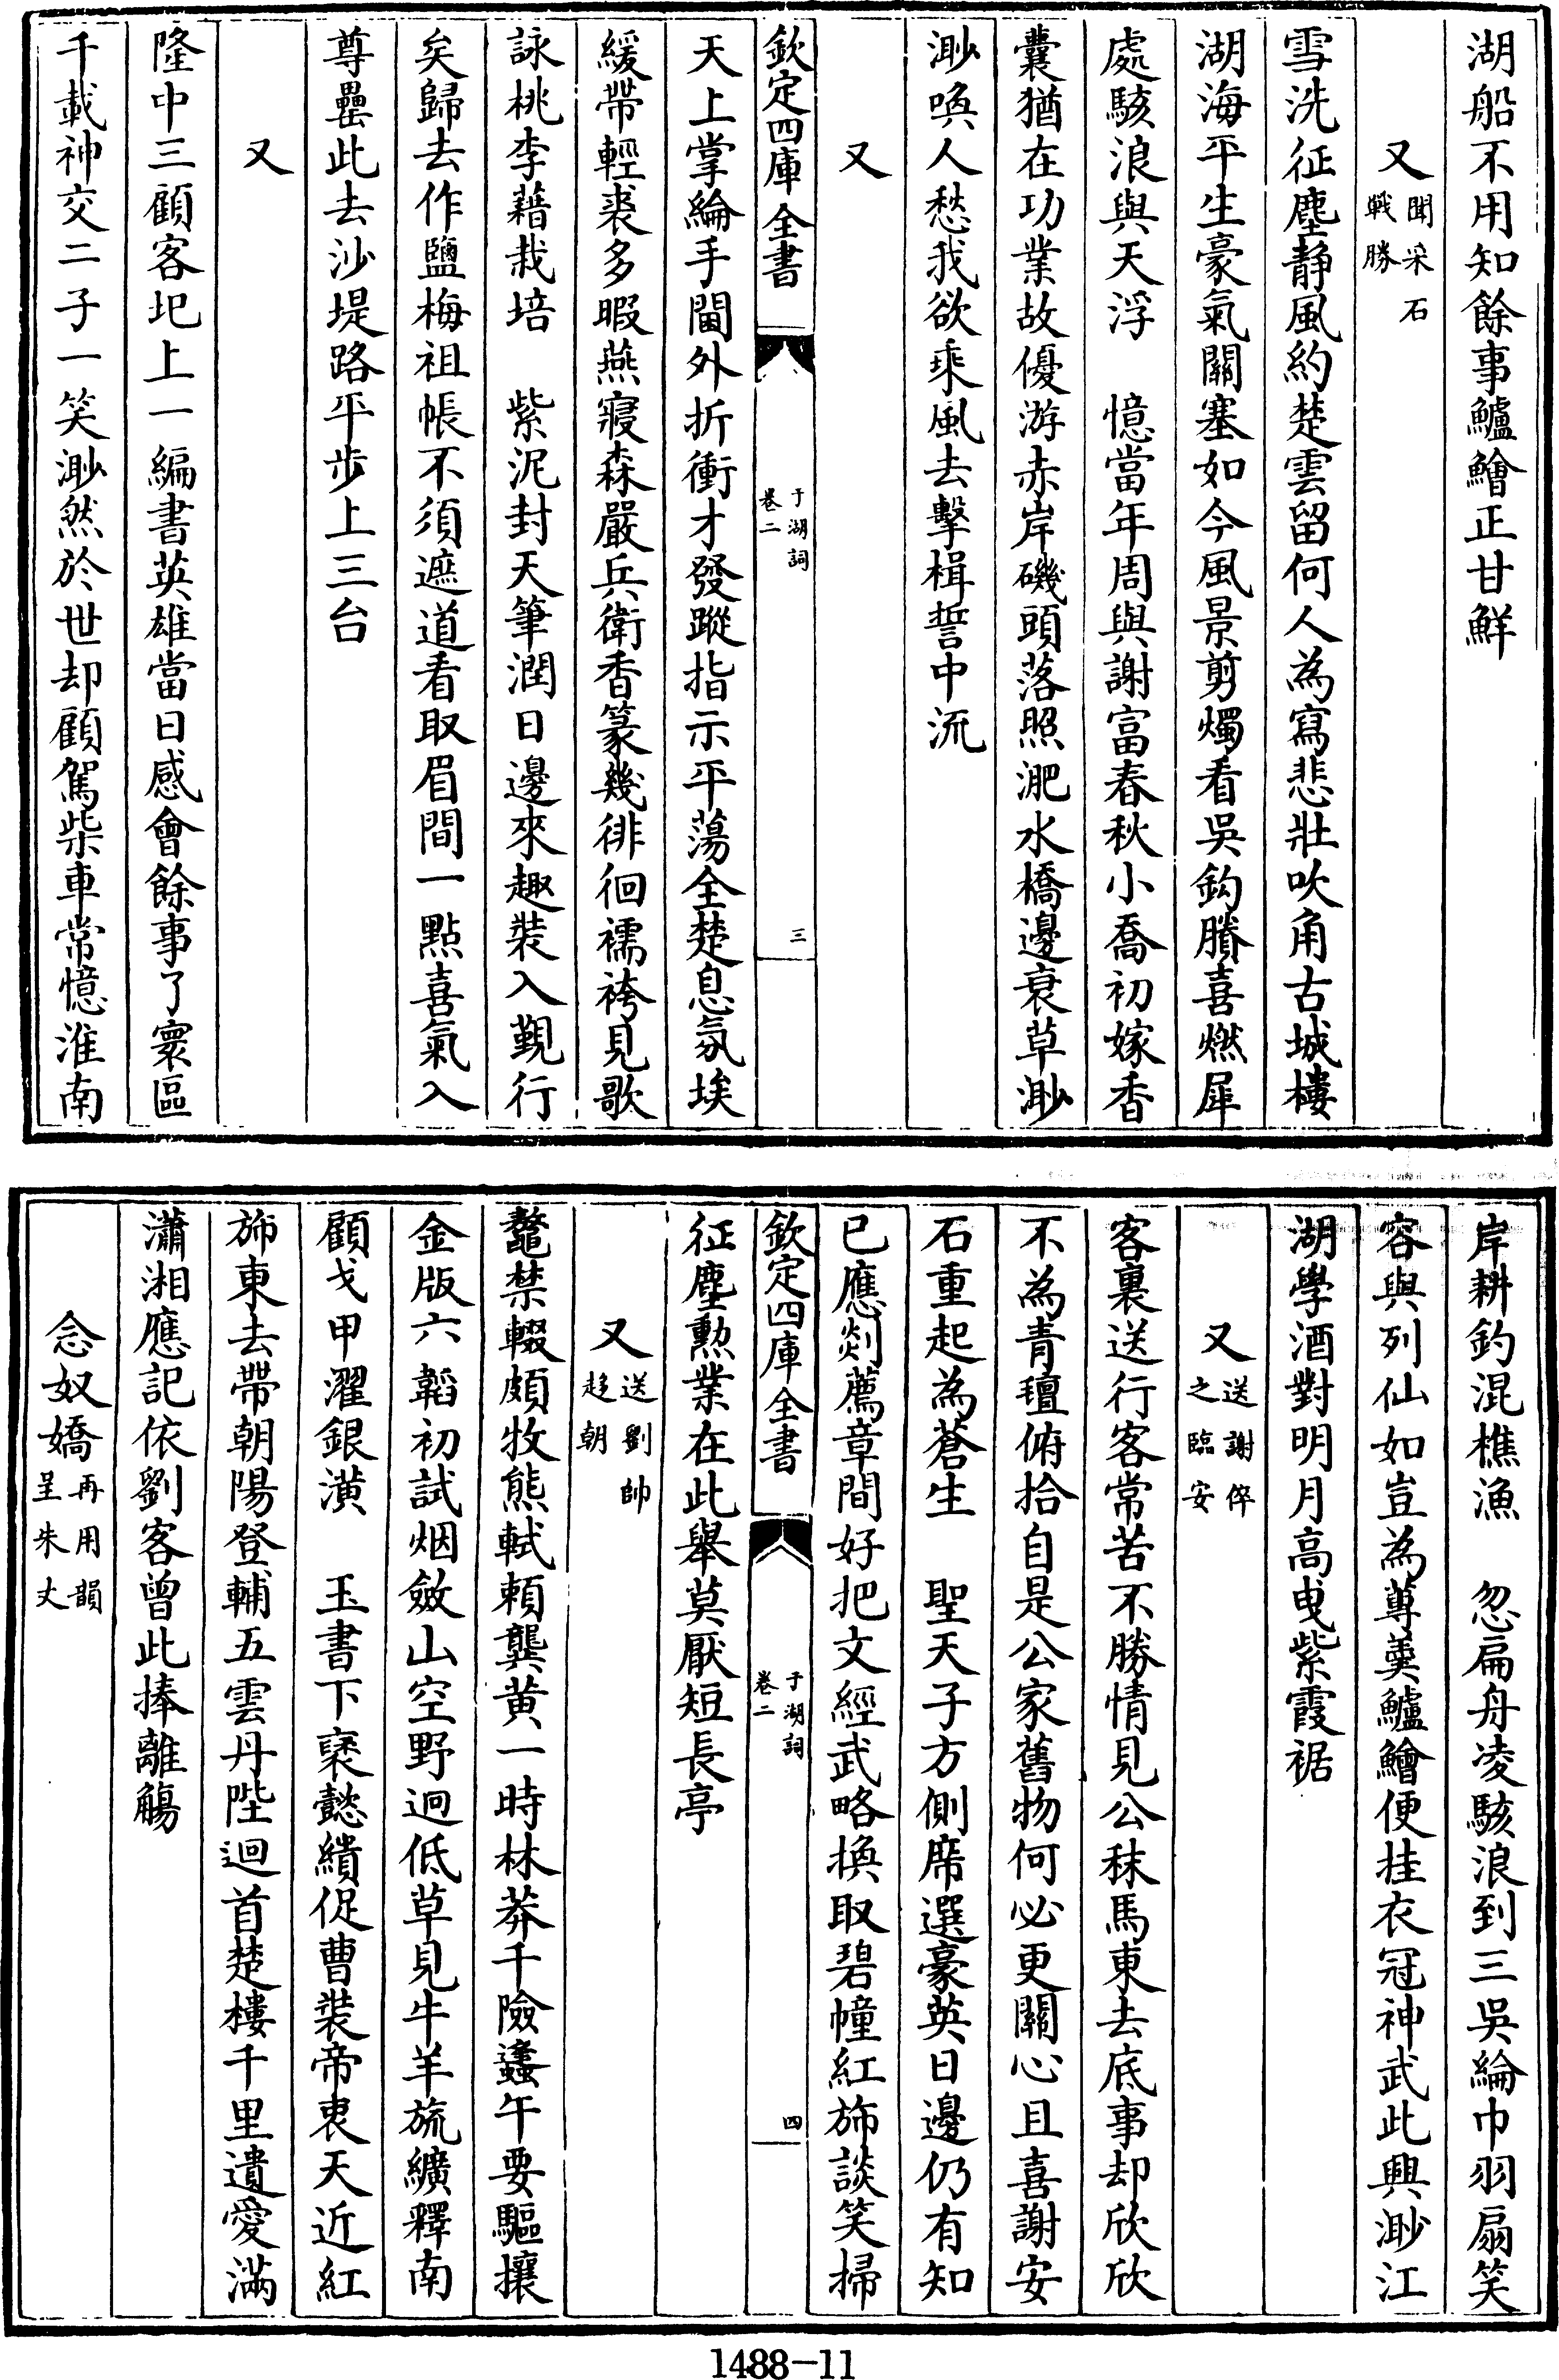 湖船不用知餘事鱸鱠正甘鮮
又聞采石
戰勝
雪洗征塵靜風約楚雲留何人為寫悲壯吹角古城樓
湖海平生豪氣關塞如今風景剪燭看吳鈎賸喜燃犀
處駭浪與天浮　憶當年周與謝富春秋小喬初嫁香
囊猶在功業故優游赤岸磯頭落照淝水橋邊衰草渺
渺喚人愁我欲乘風去擊楫誓中流
又
欽定四庫全書
于湖詞
卷二
三
天上掌綸手閫外折衝才發蹤指示平蕩全楚息氛埃
緩帶輕裘多暇燕寢森嚴兵衛香篆幾徘徊襦袴見歌
詠桃李藉栽培　紫泥封天筆潤日邊來趣裝入覲行
矣歸去作鹽梅祖帳不須遮道看取眉間一點喜氣入
尊罍此去沙堤路平步上三台
又
隆中三顧客圯上一編書英雄當日感會餘事了寰區
千載神交二子一笑渺然於世却顧駕柴車常憶淮南
岸耕釣混樵漁　忽扁舟凌駭浪到三吳綸巾羽扇笑
容與列仙如豈為蓴羹鱸鱠便挂衣冠神武此興渺江
湖學酒對明月高曳紫霞裾
又送謝倅
之臨安
客裏送行客常苦不勝情見公秣馬東去底事却欣欣
不為青氊俯拾自是公家舊物何必更關心且喜謝安
石重起為蒼生　聖天子方側席選豪英日邊仍有知
已應剡薦章間好把文經武略換取碧幢紅斾談笑掃
欽定四庫全書
于湖詞
卷二
四
征塵勲業在此舉莫厭短長亭
又送劉帥
趍朝
鼇禁輟頗牧熊軾頼龔黄一時林莽千險蠭午要驅攘
金版六韜初試烟斂山空野迥低草見牛羊旒纊釋南
顧戈甲濯銀潢　玉書下褒懿績促曹裝帝衷天近紅
斾東去帶朝陽登輔五雲丹陛迴首楚樓千里遺愛滿
瀟湘應記依劉客曾此捧離觴
念奴嬌再用韻
呈朱丈
1488-11